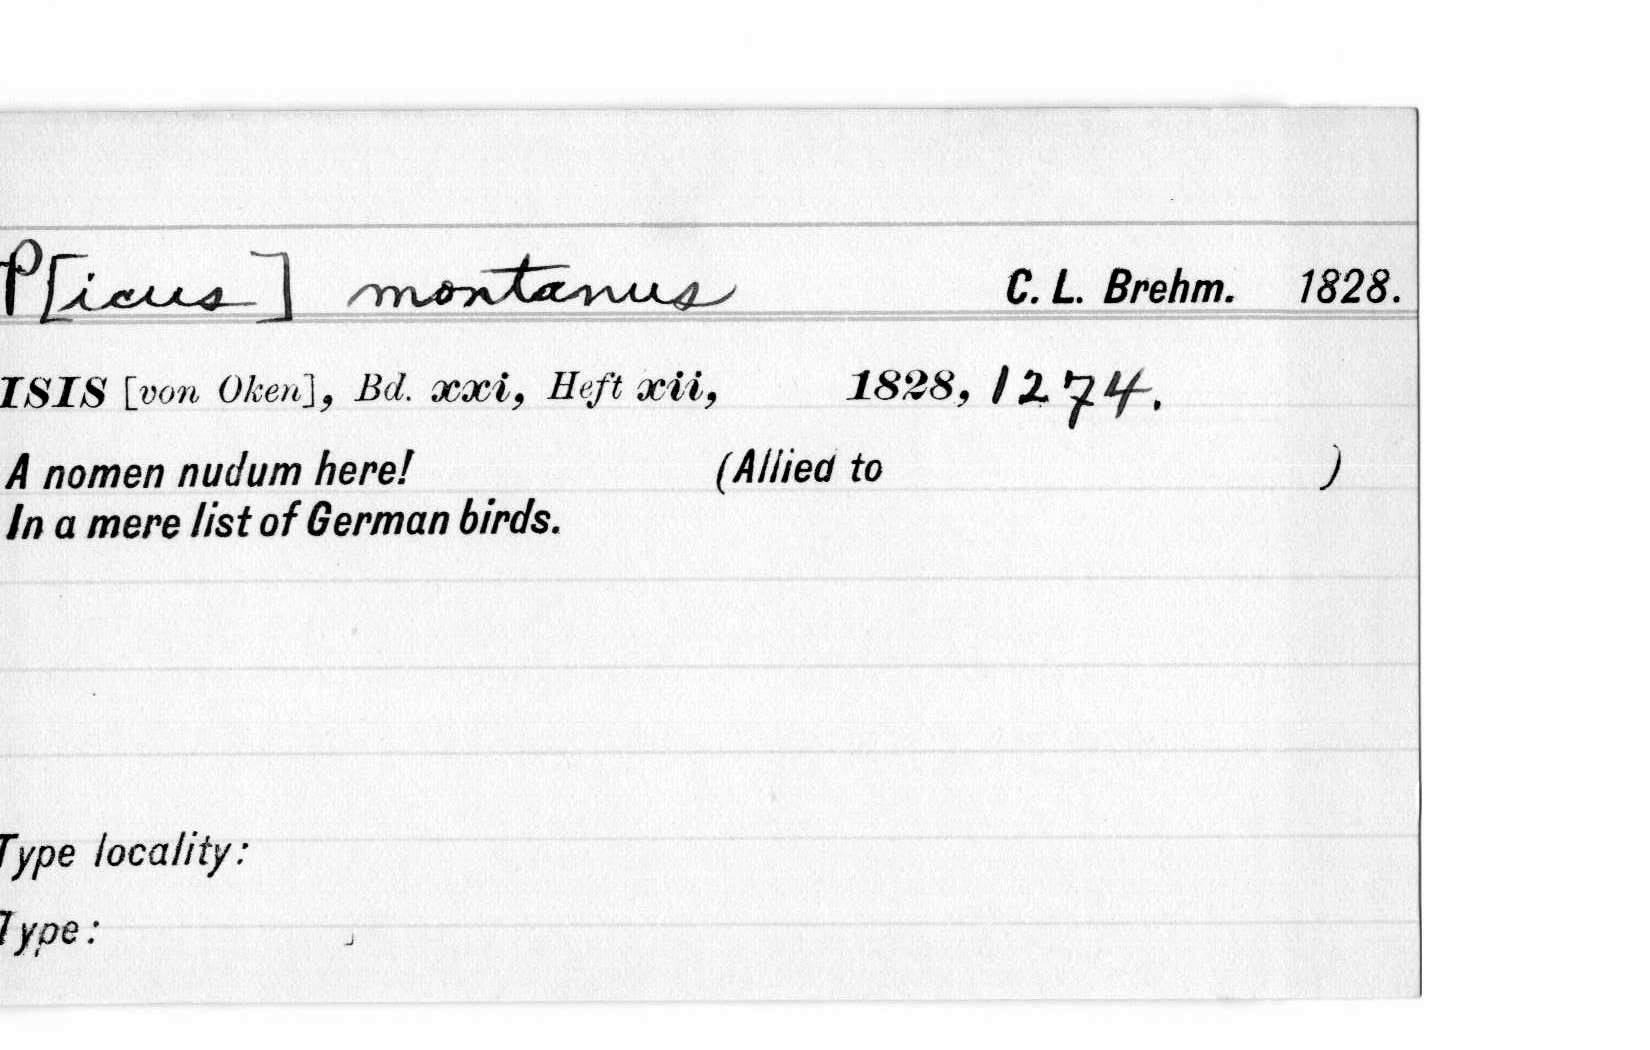 P[icus] montanus C. L. Brehm. 1828.
ISIS [von Oken], Bd. xxi, Heft xii, 1828, 1274.
A nomen nudum here! (Allied to )
In a mere list of German birds.
Type locality:
Type: